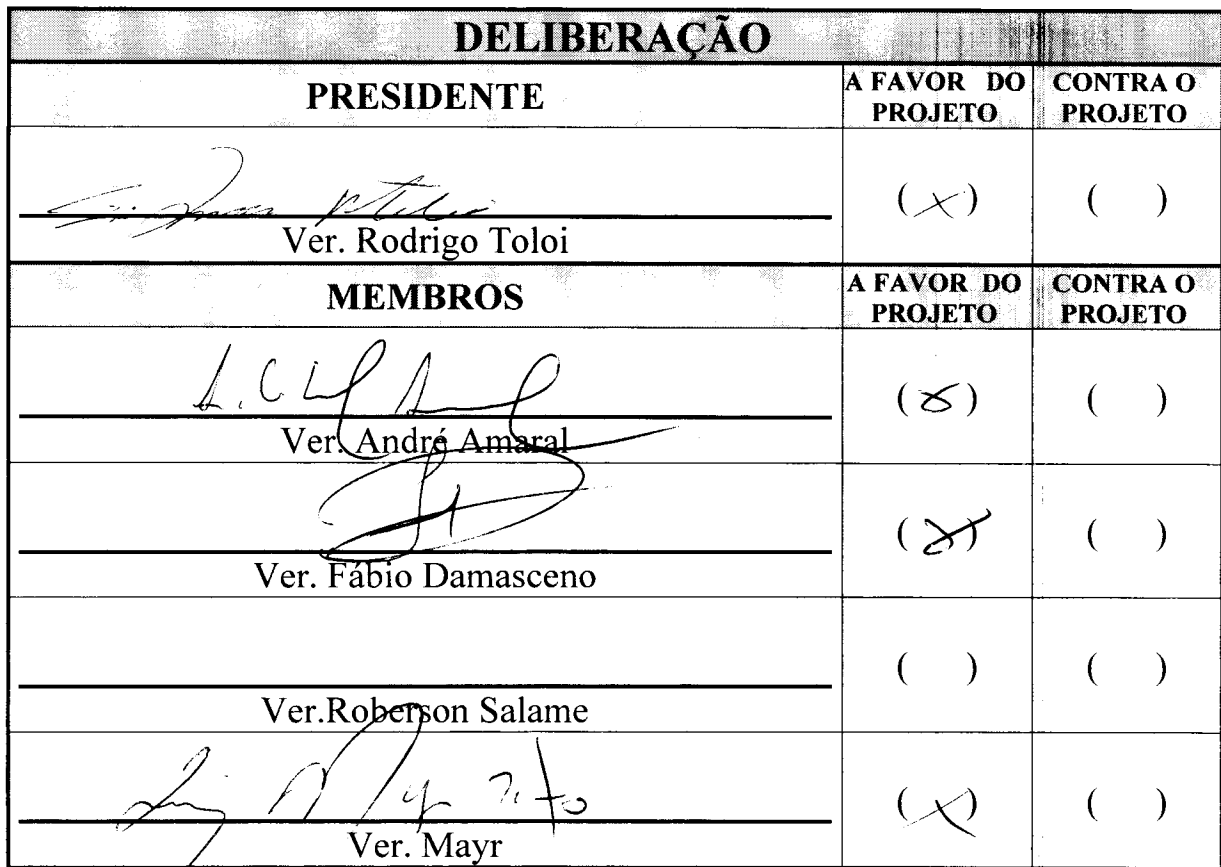 DELIBERAÇÃO
PRESIDENTE
A FAVOR DO PROJETO
CONTRA O PROJETO
(X)
( )
Ver. Rodrigo Toloi
MEMBROS
A FAVOR DO PROJETO
CONTRA O PROJETO
(X)
( )
Ver. André Amaral
(X)
( )
Ver. Fábio Damasceno
( )
( )
Ver.Roberson Salame
(X)
( )
Ver. Mayr